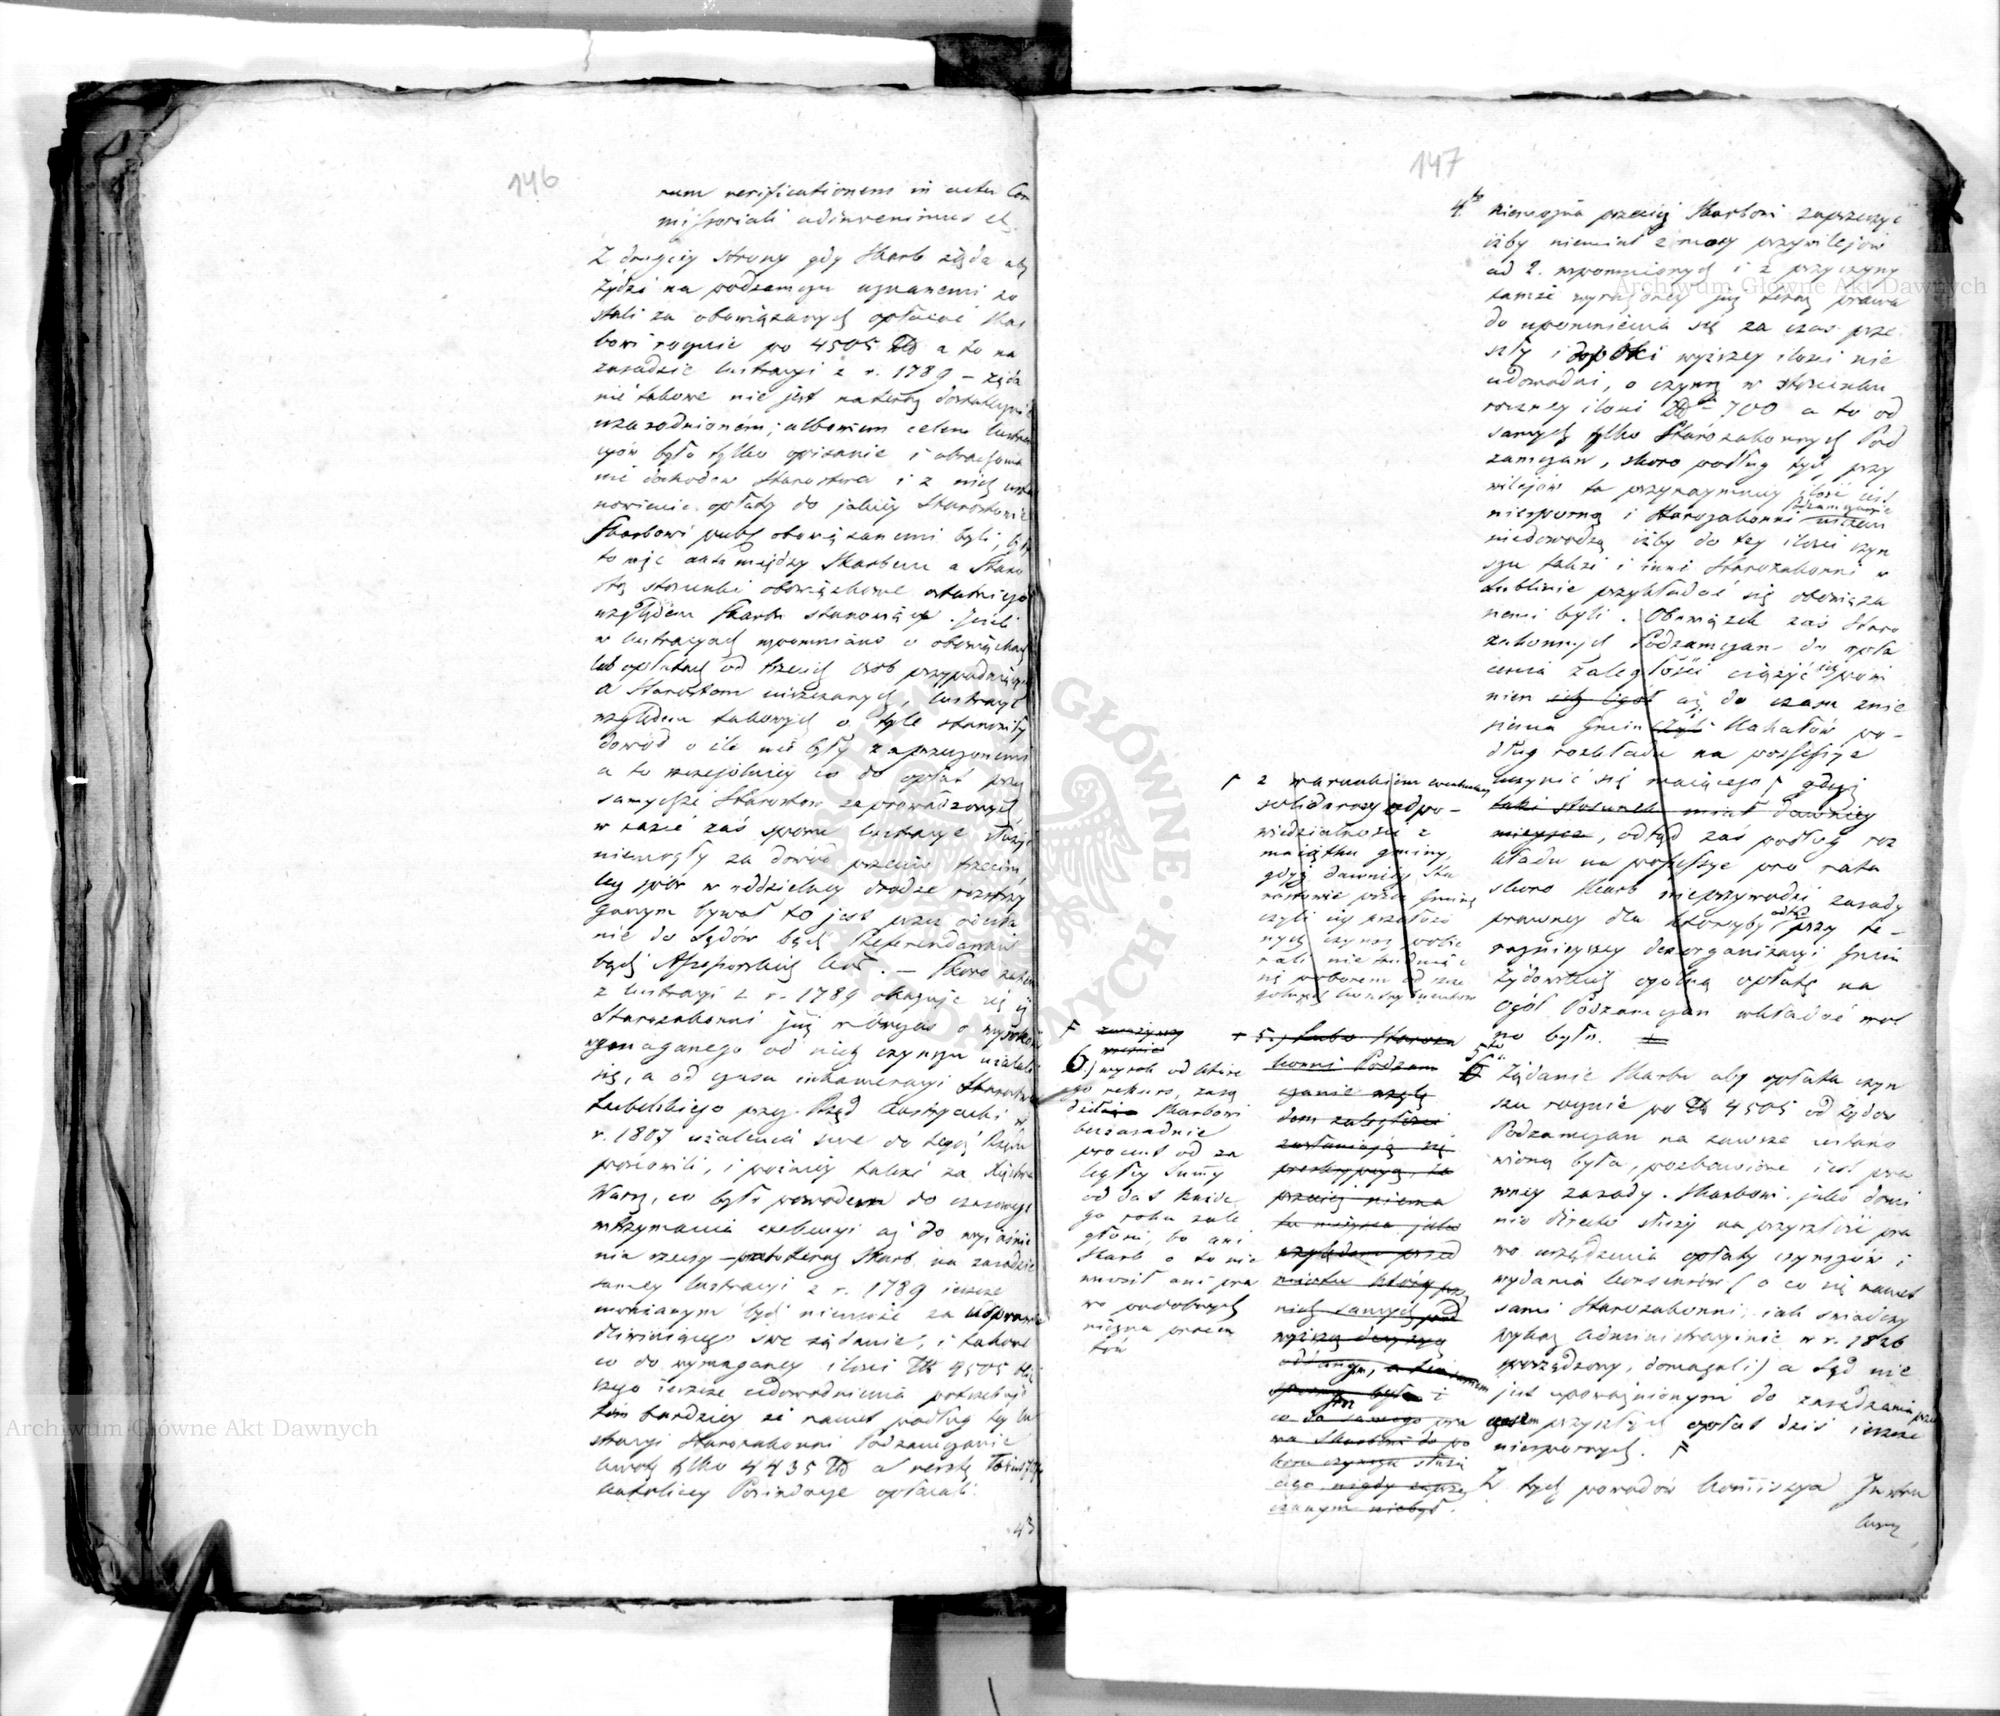 146
rum verificationem in actu Com
missoriali adinvenimus etc.
Z drugiey strony gdy Skarb żąda aby
Żydzi na podzamczu uznanemi zo
stali za obowiązanych opłacać Skar
bowi rocznie po 4505 Złp a to na
zasadzie lustracyi z r. 1789 – żąda
nie takowe nie jest należycie dostatecznie
uzasadnioném; albowiem celem lustra
cyów było tylko opisanie i obrachowa
nie dochodów Starostwa i z nich usta
nowienie opłaty do jakiey Starostowie
Skarbowi publ obowiązanemi byli,
to więc akta między Skarbem a Staro
stą stosunki obowiązkowe ostatniego
względem Skarbu stanowiące. Jeżeli
w lustracyach wspomniano o obowiązkach
lub opłatach od trzecich osób przypadających
a Starostom uiszczanych, lustracye
względem takowych o tyle stanowiły
dowód o ile nie były zaprzeczonemi
a to szczególniey co do opłat przez
samychże Starostów zaprowadzonych
w razie zaś sporu lustracye służyć
niemogły za dowód przeciw trzecim,
lecz spór w oddzielney drodze rozstrzy
ganym bywał to jest przez odesła
nie do Sądów bądź Referendarskich
bądź Assessorskich Kor. – Skoro zatem
z lustracyi z r. 1789 okazuje się iż
Starozakonni już wówczas o wysokość
wymaganego od nich czynszu użalali
się, a od czasu inkameracyi Starostwa
Lubelskiego przez Rząd Austryacki w
r. 1807 użalenia swe do tegoż Rządu
ponowili, i później także za Xięstwa
Warsz, co było powodem do czasowego
wstrzymania exekucyi aż do wyjaśnie
nia rzeczy – przeto teraz Skarb na zasadzie
samey lustracyi z r. 1789 ieszcze
mnianym być niemoże za usprawie
dliwiającego swe żądanie, i takowe
co do wymaganey ilości Złt 4505 bliż
szego ieszcze udowodnienia potrzebuje
tém bardziey że nawet podług tey lu
stracyi Starozakonni Podzamczanie
kwotę tylko 4435 Złp a resztę
katolicy Possessorye opłacali.
147
4to Niemożna przecież Skarbowi zaprzeczyć
iżby niemiał z mocy przywilejów
ad 2. wspomnionych i z przyczyny
tamże wyrażoney już teraz prawa
do upomnienia się za czas prze
szły i dopóki wyższey ilości nie
udowodni, o czynsz w stosunku
roczney ilości Złp 700 a to od
samych tylko Starozakonnych Pod
zamczan, skoro podług tych przy
wilejów ta przynaymniey ilość iest
niesporną i Starozakonni Podzamczanie niczem
niedowodzą iżby do tey ilości czyn
szu także i inni Starozakonni w
Lublinie przykładać się obowiąza
nemi byli. Obowiązek zaś Staro
zakonnych Podzamczan do opła
cenia zaległości ciążyć ich powi
nien aż do czasu znie
sienia Gmin czyli Kahałów po-
dług rozkładu na possessye
uczynić się maiącego, gdyż
taki stosunek miał dawniey
mieysce, odtąd zaś podług roz
kładu na possessye pro rata
skoro Skarb nieprzywodzi zasady
prawney dla któreyby odtąd przy te-
raznieyszey dezorganizacyi Gmin
Żydowskich ogólną opłatę na
ogół Podzamczan wkładać wol
no było.
z warunkiem
solidarney odpo-
wiedzialności z
maiątku gminy,
gdyż dawniey Sta
rostowie przez Gminę
czyli iey przełożo
nych czynsz pobie
rali nie trudniąc
się poborem od szcze
gólnych kontrybuentów
6.) wyrok od które
go rekurs, zasą
dzaiąc Skarbowi
bezzasadnie
procent od za
ległey Summy
od dat każde
go roku zale
głości, bo ani
Skarb o to nie
wnosił ani pra
wo podobnych
niezna procen
tów
+ 5.) Lubo Staroza
konni Podzam
czanie wzglę
dem zaległości
zasłaniają się
preskrypcyą, ta
przecież niema
tu mieysca jako
względem przed
miotu który przez
nich samych pod
wyższą decyzyą
oddany,
spornym było i
co do samego pra
wa Skarbowi do po
boru czynszu służą
cego nigdy zaprze
czanym niebył.
5to Żądanie Skarbu aby opłata czyn
szu rocznie po Złt 4505 od żydów
Podzamczan na zawsze ustano
wioną była, pozbawione iest pra
wney zasady. Skarbowi jako domi
nio directo służy na przyszłość pra
wo urządzenia opłaty czynszów i
wydania konsensów (o co się nawet
sami Starozakonni, iak świadczy
wykaz administracyinie w r. 1826
sporządzony, domagali) a Sąd nie
jest upoważnionym do zasądzania
przyszłych opłat dziś ieszcze
niespornych.
Z tych powodów Kommissya